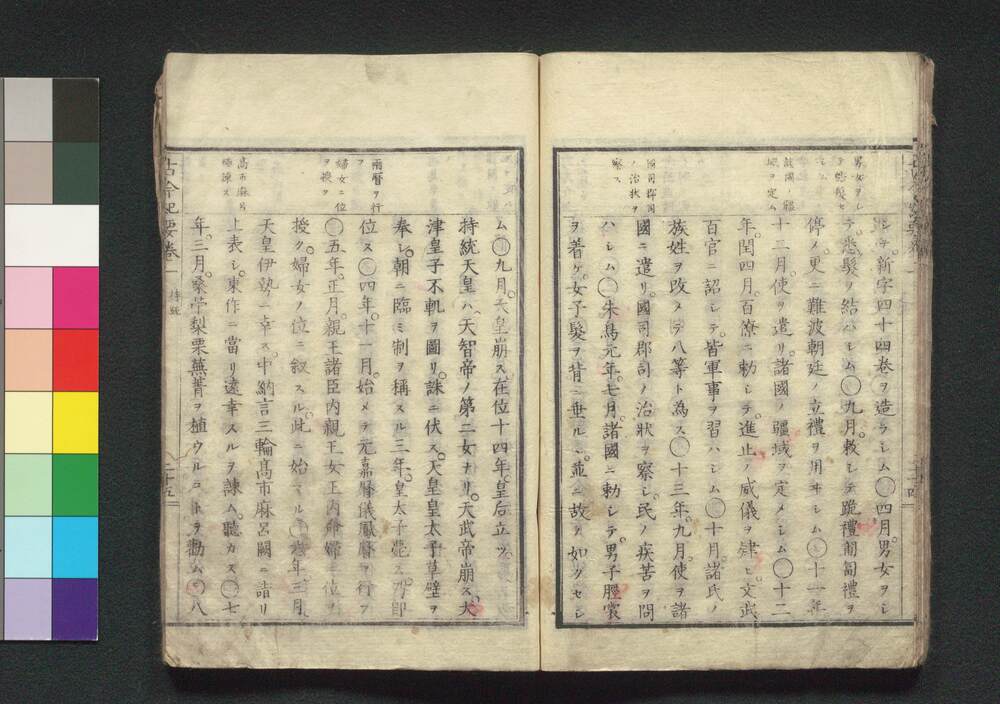 男女ヲシ
テ悉髪セ
シム
諸國ノ疆
域ヲ定ム
國司郡司
ノ治狀ヲ
察ス
新字四十四卷ヲ造ラシム〇四月男女ヲシ
テ悉髮ヲ結ハシム〇九月敕シテ跪禮匍匐禮ヲ
停メ更ニ難波朝廷ノ立禮ヲ用ヰシム〇十一年
十二月使ヲ遣リ諸國ノ疆域ヲ定メシム〇十二
年閏四月百僚ニ勅シテ進止ノ威儀ヲ肄ヒ文武
百官ニ詔シテ皆軍事ヲ習ハシム〇十月諸氏ノ
族姓ヲ改メテ八等ト為ス〇十三年九月使ヲ諸
國ニ遣リ國司郡司ノ治狀ヲ察シ民ノ疾苦ヲ問
ハシム〇朱鳥元年七月諸國ニ勅シテ男子脛裳
ヲ着ケ女子髮ヲ背ニ垂ルヽ並ニ故ノ如クセシ
兩曆ヲ行
フ
婦女ニ位
ヲ授ク
高市麻呂
極諫ス
ム〇九月天皇崩ス在位十四年皇后立ツ
持統天皇ハ天智帝ノ第二女ナリ天武帝崩ス大
津皇子不軌ヲ圖リ誅ニ伏ス天皇皇太子草壁ヲ
奉シ朝ニ臨ミ制ヲ稱スル三年皇太子薨ス乃即
位ス〇四年十一月始メテ元嘉曆儀鳳曆ヲ行フ
〇五年正月親王諸臣内親王女王内命婦ニ位ヲ
授ク婦女ノ位ニ叙スル此ニ始マル〇六年三月
天皇伊勢ニ幸ス中納言三輪高市麻呂闕ニ詣リ
上表シ東作ニ當リ遠幸スルヲ諫ム聽カス〇七
年三月桑苧梨栗蕪菁ヲ植ウルコトヲ勸ム〇八
古今紀要卷一 持統 二十五